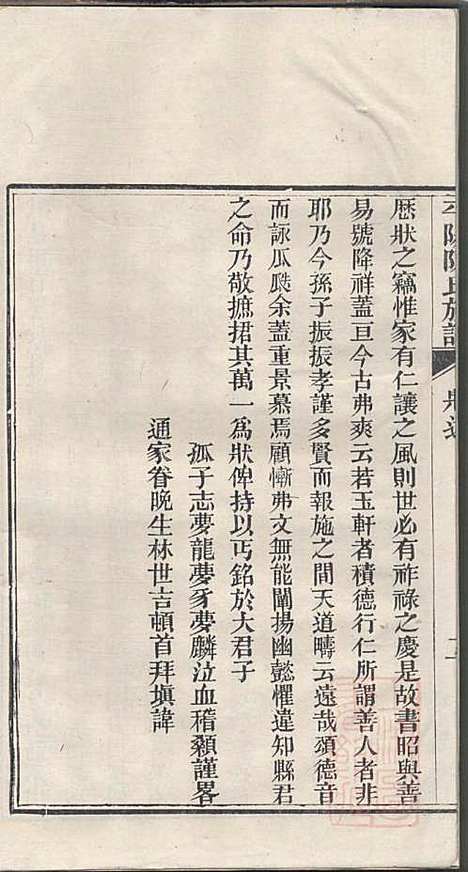 平陽陳氏族譜
歷狀之竊惟家有仁讓之風則世必有祚祿之慶是故書昭與善
易號降祥蓋亘今古弗爽云若玉軒者積德行仁所謂善人者非
耶乃今孫子振振孝謹多賢而報施之間天道疇云遠哉頌德音
而詠瓜瓞余蓋重景慕焉顧慚弗文無能闡揚幽懿懼違知縣君
之命乃敬摭捃其萬一為狀俾持以丐銘於大君子
孤子志夢龍夢豸夢麟泣血稽顙謹畧
通家眷晚生林世吉頓首拜塡諱